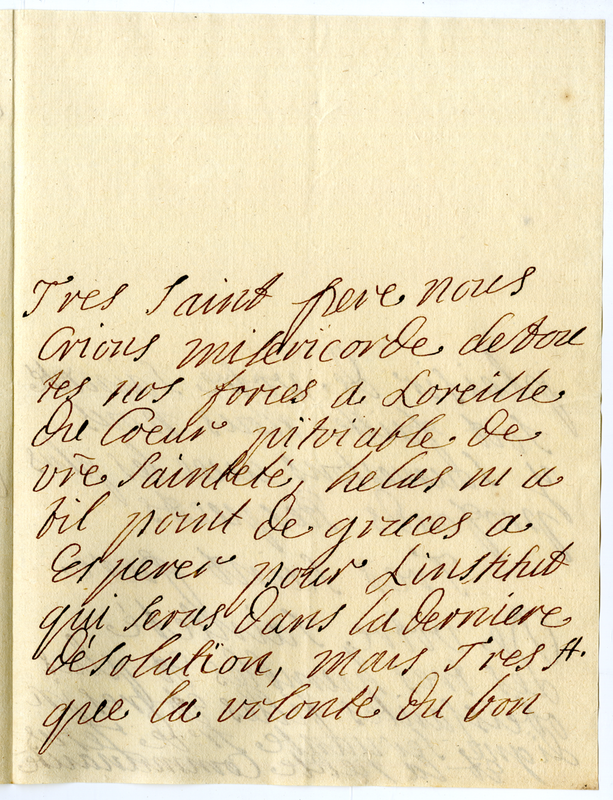 Tres Saint pere nous
Crions misericorde de tou
tes nos forces a Loreille
du Coeur pitoiable de
vr̃e Sainteté, helas ni a
til point de graces a
Esperer pour Linstitut
qui seras dans la derniere
desolation, mais Tres St.
que la volonté du bon